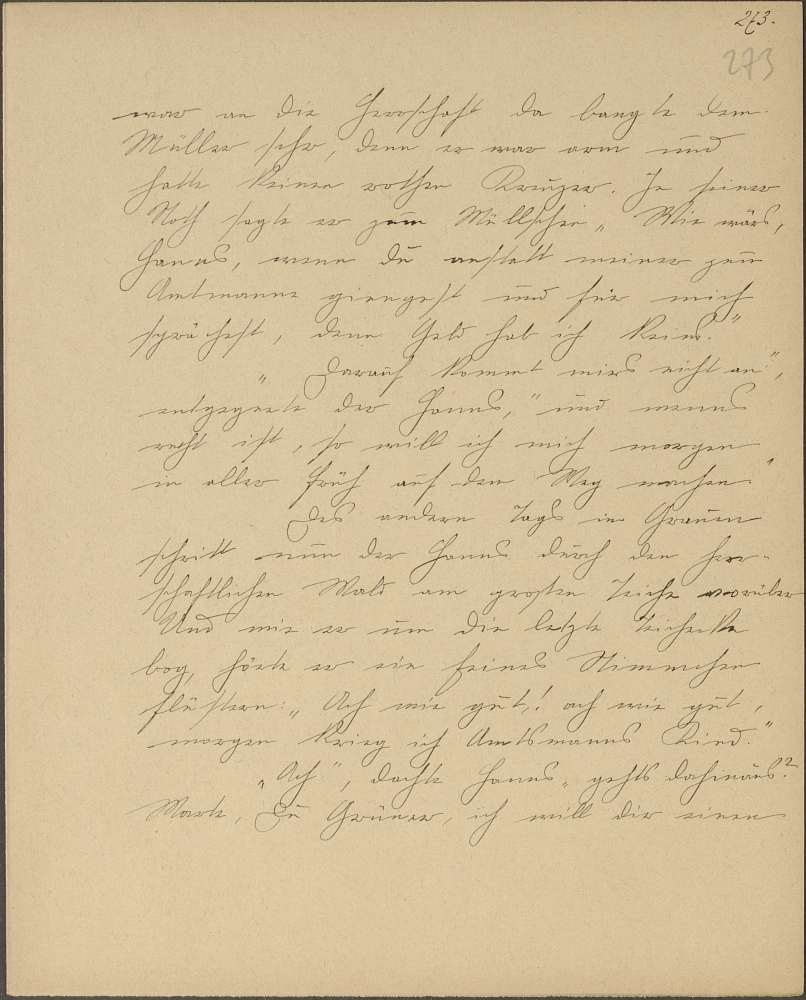 273.
273
war an die Herrschaft da bangte dem
Müller sehr, denn er war arm und
hatte keinen rothen Kreuzer. In seiner
Noth sagte er zum Mühlschen „ Wie wärs,
Hanns, wenn du anstatt meiner zum
Amtmanne giengest und für mich
sprächest, denn Geld hab ich keins."
„ Darauf kommt mirs nicht an",
entgegnete der Hanns, " und wenns
recht ist, so will ich mich morgen
in aller Früh auf den Weg machen."
Des andern Tags im Grauen
schritt nun der Hanns durch den herr-
schaftlichen Wald am großen Teiche vorüber
Und wie er um die letzte Teichecke
bog, hörte er ein feines Stimmchen
flüstern: „ Ach wie gut,! ach wie gut,
morgen krieg ich Amtsmanns Kind."
„Ach", dachte Hanns, „ gehts dahinaus?
Warte, Du Grüner, ich will dir einen